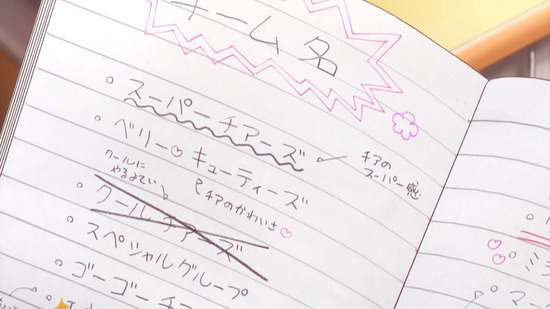 チーム名
スーパーチアーズ
チアの
スーパー感
ベリー♡キューティーズ
チアのかわいさ♡
クールに
やるよていσ
クールチアーズ
スペシャルグループ
ゴーゴーチ